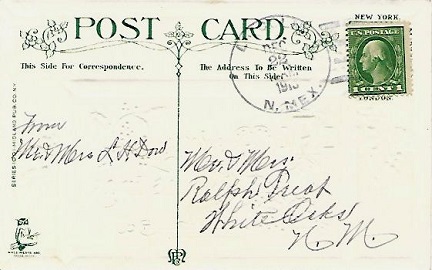 NEW YORK.
POST CARD.
This Side For Correspondence.
The Address To Be Written
On This Side.
DEC
22
N. MEX.
U.S. POSTAGE
1 CENT 1
LONDON.
From
Mr & Mrs L H Dow
Mr. & Mrs.
Ralph Treat
White Oaks
N. M.